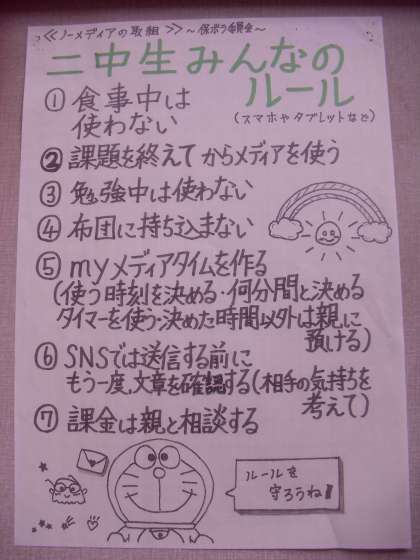 ≪ノーメディアの取組≫～保ボラ委員会～
二中生みんなの
ルール
(スマホやタブレットなど)
① 食事中は
使わない
② 課題を終えてからメディアを使う
③ 勉強中は使わない
④ 布団に持ち込まない
⑤ myメディアタイムを作る
(使う時刻を決める・何分間と決める
タイマーを使う・決めた時間以外は親に
預ける)
⑥ SNSでは送信する前に
もう一度、文章を確認する(相手の気持ちを
考えて)
⑦ 課金は親と相談する
ルールを
守ろうね!!